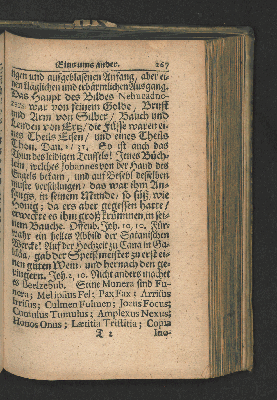 Eins ums ander. 267
tigen und aufgeblasenen Anfang, aber ei-
nen kläglichen und erbärmlichen Ausgang.
Das Haupt des Bildes Nebucadne-
zars war von feinem Golde, Brust
und Arm von Silber, Bauch und
Lenden von Ertz, die Füsse waren ei-
nes Theils Eisen, und eines Theils
Thon, Dan. 2, 31. So ist auch das
Thun des leidigen Teuffels! Jenes Büch-
lein, welches Johannes von der Hand des
Engels bekam, und auf Befehl desselben
muste verschlingen, das war ihm An-
fangs, in seinem Munde, so süß, wie
Honig; da ers aber gegessen hatte,
erweckte es ihm groß krümmen, in sei-
nem Bauche. Offenb. 10, 10. Für-
wahr ein helles Abbild der Satanischen
Wercke! Auf der Hochzeit zu Cana in Ga-
liläa, gab der Speismeister zu erst ei-
nen guten Wein, und hernach den ge-
ringern. Joh. 2, 10. Nicht anders machet
es Beelzebub. Sunt Munera sind Fu-
nera; Mellitius Fel; Pax Fax; Arrisus
Irrisus; Culmen Fulmen; Jocus Focus;
Cumulus Tumulus; Amplexus Nexus;
Honos Onus; Lætitia Tristitia; Copia
T 2 Ino-